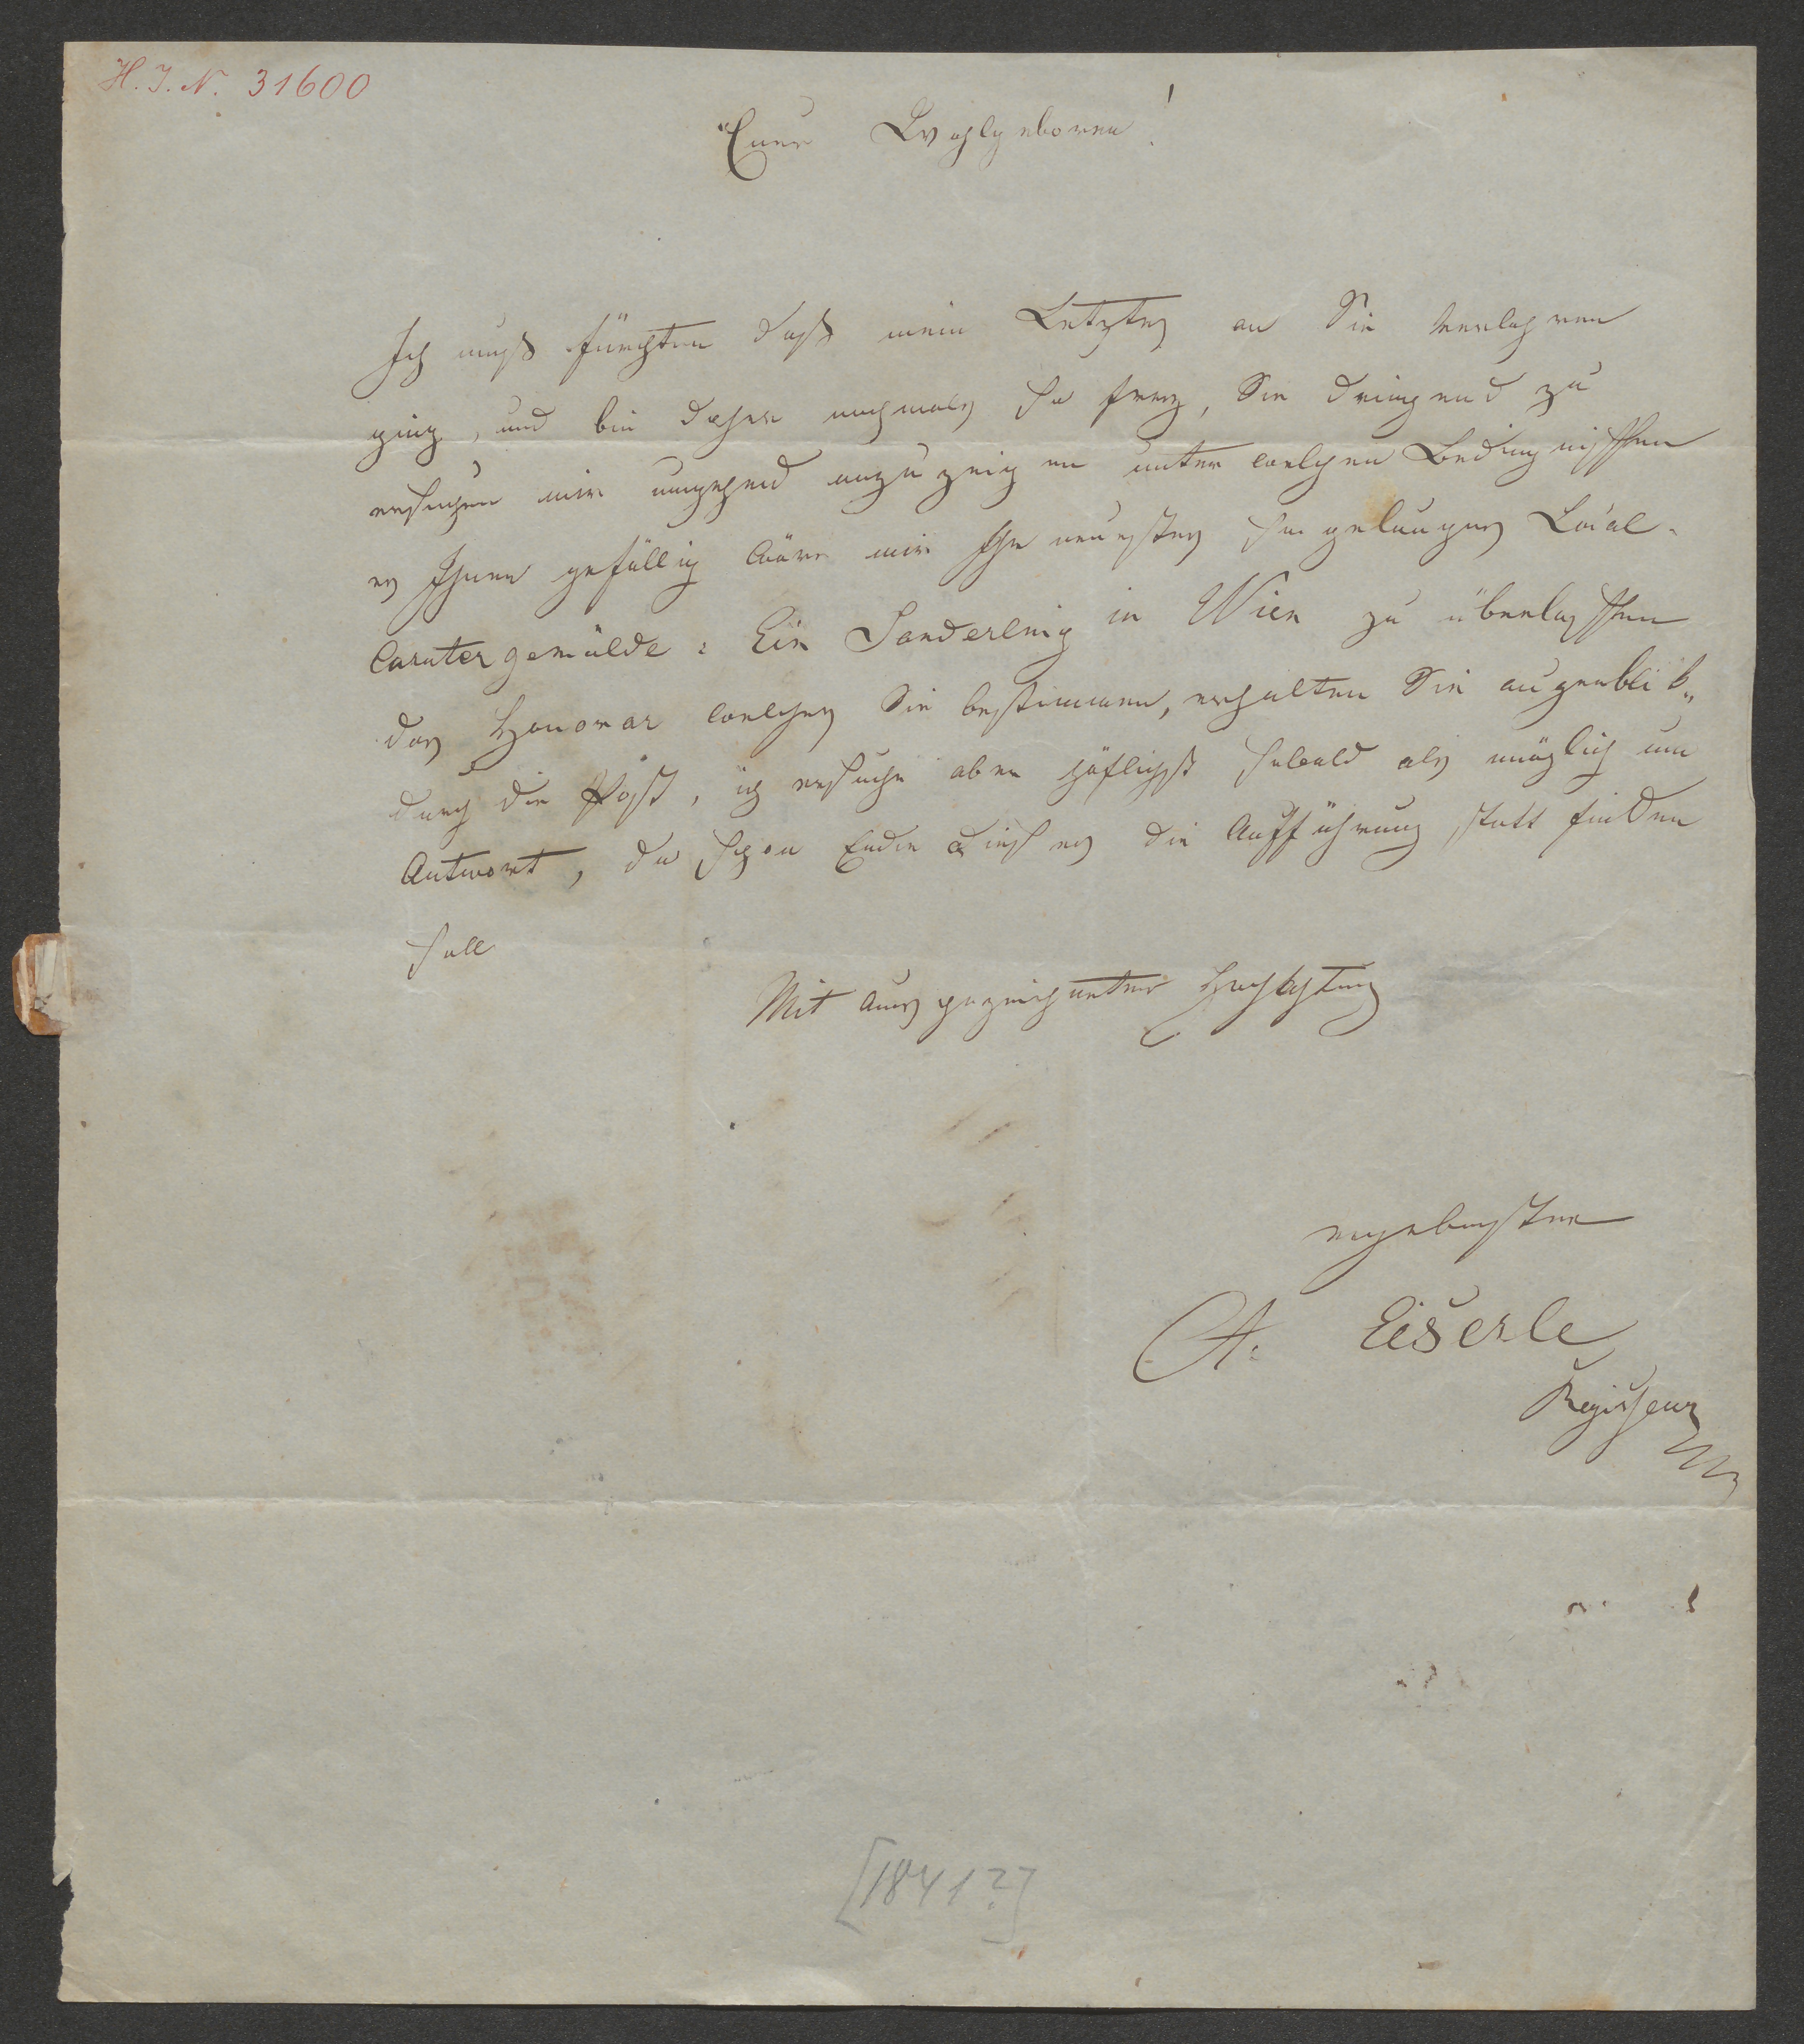 H. I. N. 31600
Euer Wohlgeboren!
Ich muß fürchten daß mein Letztes an Sie verlohren
ging, und bin daher nochmals so frey, Sie dringend zu
ersuchen mir umgehend anzuzeigen unter welchen Bedingnissen
es Ihnen gefällig wäre mir Ihr neuestes so gelungenes Local-
Caratergemälde: Ein Sonderling in Wien zu überlassen
das Honorar welches Sie bestimmen, erhalten Sie augenblik„
durch die Post, ich ersuche aber höflichst sobald als möglich um
Antwort, da schon Ende dieses die Aufführung statt finden
soll
Mit ausgezeichneter Hochachtung
ergebenster
A. Eiserle
Regisseur
[1841?]